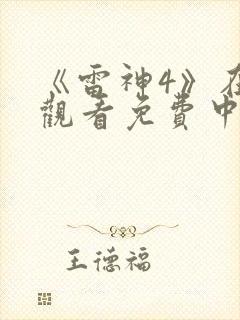 《雷神4》在
觀看免費中
王德福